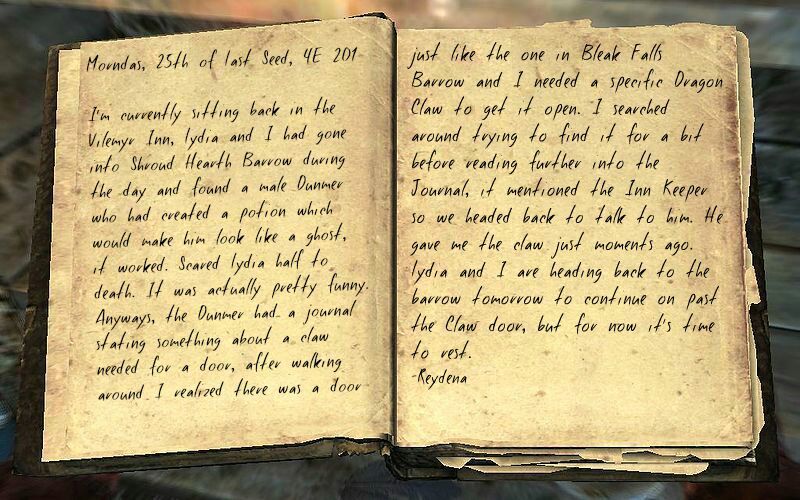 Morndas, 25th of last Seed, 4E 201
I'm currently sitting back in the
Vilemyr Inn, lydia and I had gone
into Shroud Hearth Barrow during
the day and found a male Dunmer
who had created a potion which
would make him look like a ghost,
it worked. Scared lydia half to
death. It was actually pretty funny.
Anyways, the Dunmer had a journal
stating something about a claw
needed for a door, after walking
around I realized there was a door
just like the one in Bleak Falls
Barrow and I needed a specific Dragon
Claw to get it open. I searched
around trying to find it for a bit
before reading further into the
Journal, it mentioned the Inn Keeper
so we headed back to talk to him. He
gave me the claw just moments ago.
lydia and I are heading back to the
barrow tomorrow to continue on past
the Claw door, but for now it's time
to rest.
-Reydena